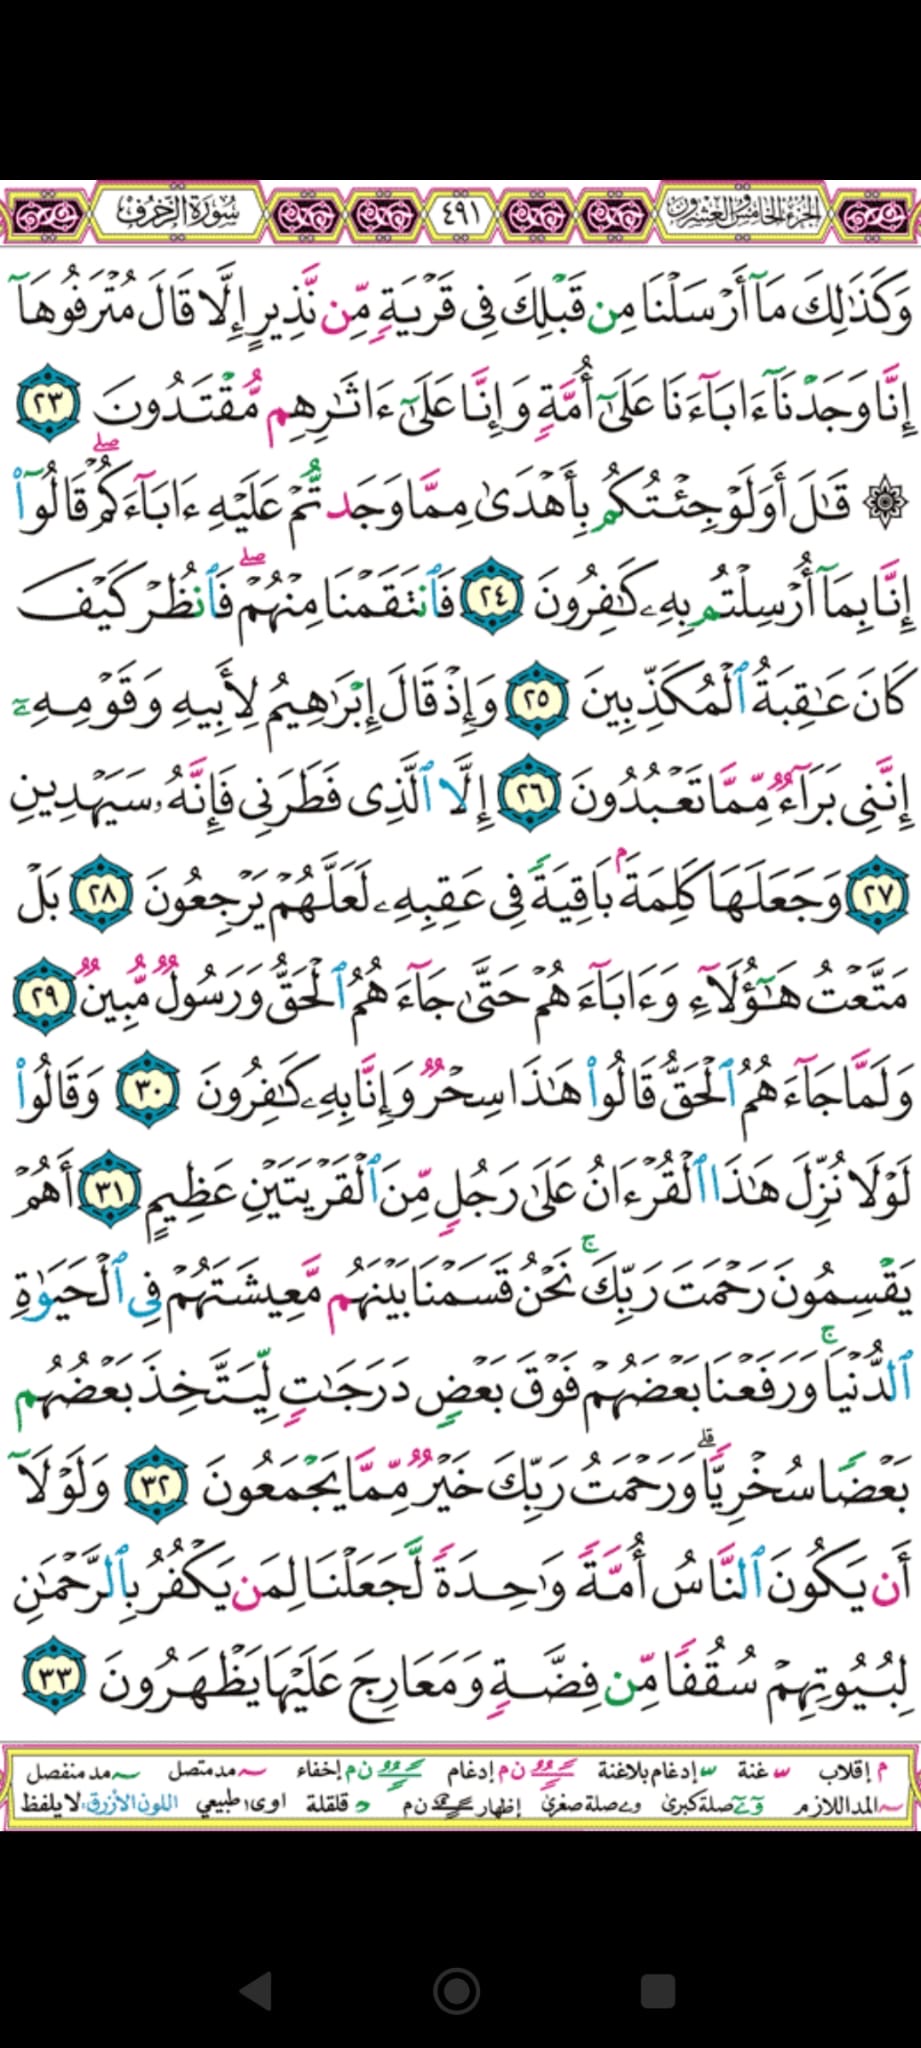 الجزء الخامس والعشرون ٤٩١ سورة الزخرف
وَكَذَٰلِكَ مَآ أَرْسَلْنَا مِن قَبْلِكَ فِى قَرْيَةٍ مِّن نَّذِيرٍ إِلَّا قَالَ مُتْرَفُوهَآ
إِنَّا وَجَدْنَآ ءَابَآءَنَا عَلَىٰٓ أُمَّةٍ وَإِنَّا عَلَىٰٓ ءَاثَٰرِهِم مُّقْتَدُونَ ٢٣
۞ قَٰلَ أَوَلَوْ جِئْتُكُم بِأَهْدَىٰ مِمَّا وَجَدتُّمْ عَلَيْهِ ءَابَآءَكُمْ ۖ قَالُوٓا۟
إِنَّا بِمَآ أُرْسِلْتُم بِهِۦ كَٰفِرُونَ ٢٤ فَٱنتَقَمْنَا مِنْهُمْ ۖ فَٱنظُرْ كَيْفَ
كَانَ عَٰقِبَةُ ٱلْمُكَذِّبِينَ ٢٥ وَإِذْ قَالَ إِبْرَٰهِيمُ لِأَبِيهِ وَقَوْمِهِۦٓ
إِنَّنِى بَرَآءٌ مِّمَّا تَعْبُدُونَ ٢٦ إِلَّا ٱلَّذِى فَطَرَنِى فَإِنَّهُۥ سَيَهْدِينِ
٢٧ وَجَعَلَهَا كَلِمَةًۢ بَاقِيَةً فِى عَقِبِهِۦ لَعَلَّهُمْ يَرْجِعُونَ ٢٨ بَلْ
مَتَّعْتُ هَٰٓؤُلَآءِ وَءَابَآءَهُمْ حَتَّىٰ جَآءَهُمُ ٱلْحَقُّ وَرَسُولٌ مُّبِينٌ ٢٩
وَلَمَّا جَآءَهُمُ ٱلْحَقُّ قَالُوا۟ هَٰذَا سِحْرٌ وَإِنَّا بِهِۦ كَٰفِرُونَ ٣٠ وَقَالُوا۟
لَوْلَا نُزِّلَ هَٰذَا ٱلْقُرْءَانُ عَلَىٰ رَجُلٍ مِّنَ ٱلْقَرْيَتَيْنِ عَظِيمٍ ٣١ أَهُمْ
يَقْسِمُونَ رَحْمَتَ رَبِّكَ ۚ نَحْنُ قَسَمْنَا بَيْنَهُم مَّعِيشَتَهُمْ فِى ٱلْحَيَوٰةِ
ٱلدُّنْيَا ۚ وَرَفَعْنَا بَعْضَهُمْ فَوْقَ بَعْضٍ دَرَجَٰتٍ لِّيَتَّخِذَ بَعْضُهُم
بَعْضًا سُخْرِيًّا ۗ وَرَحْمَتُ رَبِّكَ خَيْرٌ مِّمَّا يَجْمَعُونَ ٣٢ وَلَوْلَآ
أَن يَكُونَ ٱلنَّاسُ أُمَّةً وَٰحِدَةً لَّجَعَلْنَا لِمَن يَكْفُرُ بِٱلرَّحْمَٰنِ
لِبُيُوتِهِمْ سُقُفًا مِّن فِضَّةٍ وَمَعَارِجَ عَلَيْهَا يَظْهَرُونَ ٣٣
م إقلاب ّ غنة ّ إدغام بلاغنة ن م إدغام ن م إخفاء ~ مد متصل ~ مد منفصل
~ المد اللازم وٓ ےٓ صلة كبرى و ے صلة صغرى إظهار ن م د قلقلة اوى، طبيعي اللون الأزرق: لا يلفظ